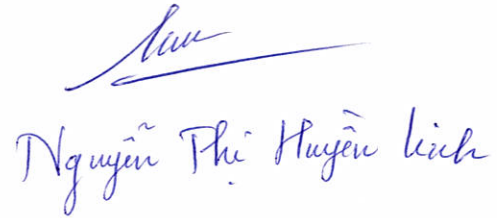 Nguyễn Thị Huyền Linh